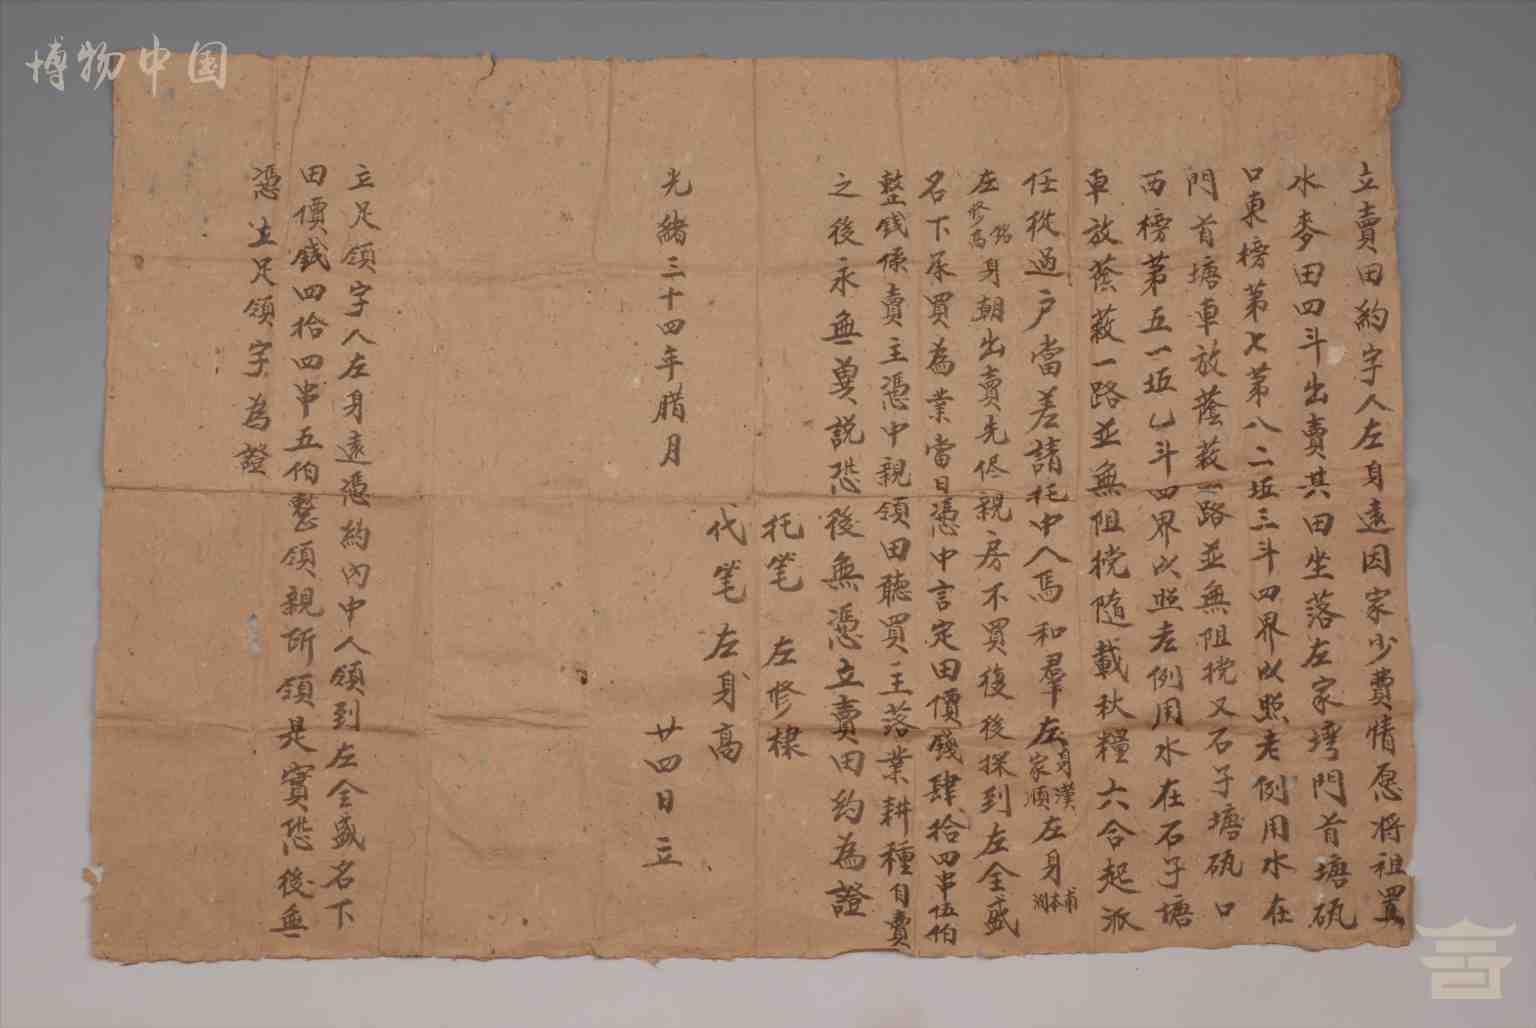 博物中国
立賣田約字人左身遠因家少費情愿将祖置
水麥田四斗出賣其田坐落左家塆門首塘砙
口東榜第七第八二坵三斗四界以照老例用水在
門首塘車放蔭蓺一路並無阻撓又石子塘砙口
西榜第五一坵乙斗四界以照老例用水在石子塘
車放蔭蓺一路並無阻撓隨載秋糧六合起派
任從過户當差請托中人馬和羣左身漢家順左身甫本湖
左修銘高身朝出賣先侭親房不買復後探到左全盛
名下承買為業當日憑中言定田價錢肆拾四串伍伯
整錢係賣主憑中親領田聽買主落業耕種自賣
之後永無異説恐後無憑立賣田約為證
托筆 左修棣
代筆 左身高
光緒三十四年腊月 廿四日 立
立足領字人左身遠憑約内中人領到左全盛名下
田價錢四拾四串五伯整領親所領是實恐後無
憑立足領字為證